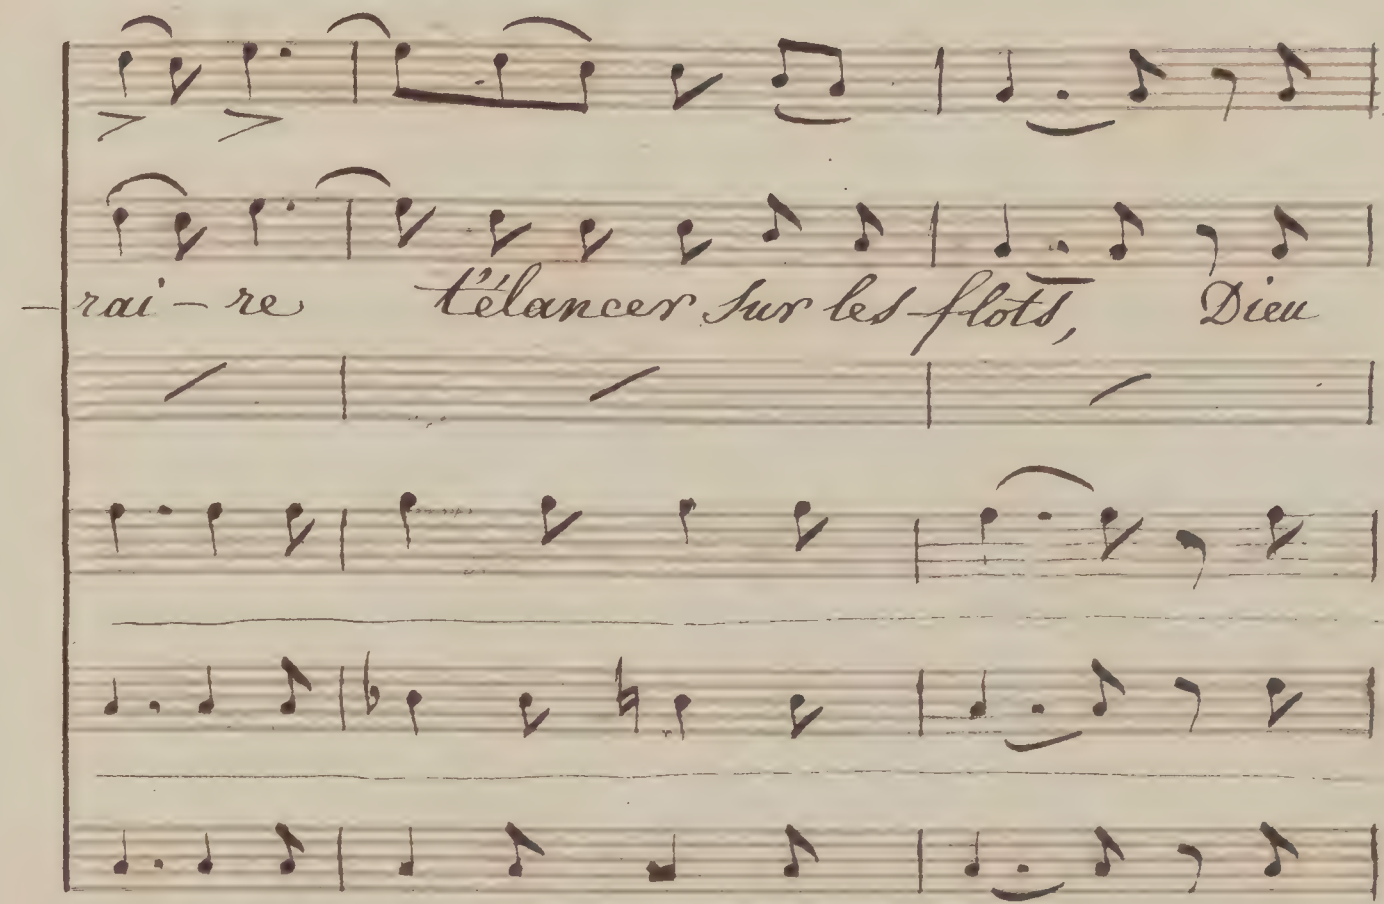 – rai – re t'élancer sur les flots, Dieu